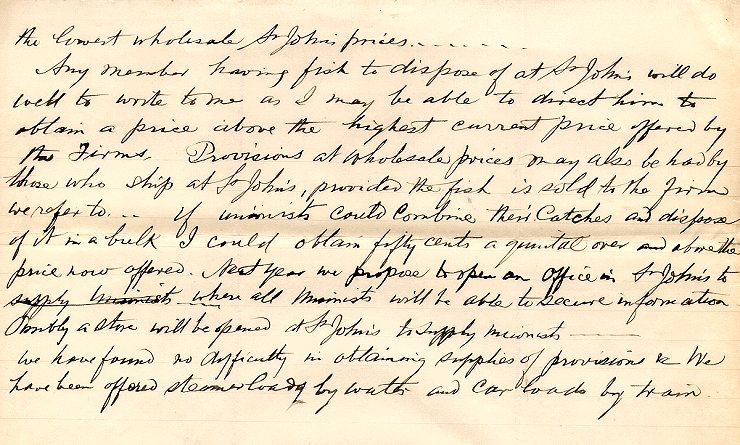 the lowest wholesale St Johns prices. . . . . . .
Any member having fish to dispose of at St Johns will do
well to write to me as I may be able to direct him to
obtain a price above the highest current price offered by
the Firms. Provisions at wholesale prices may also be had by
those who ship at St John's, provided the fish is sold to the firm
we refer to. .. If unionists could combine their Catches and dispose
of it in a bulk I could obtain fifty cents a quintal over and above the
price now offered. Next year we propose to open an Office in St Johns to
supply Unionists where all Unionists will be able to secure information
Possibly a store will be opened at St Johns to supply unionists ———
we have found no difficulty in obtaining supplies of provisions &c We
have been offered steamer loads by water and car loads by train.